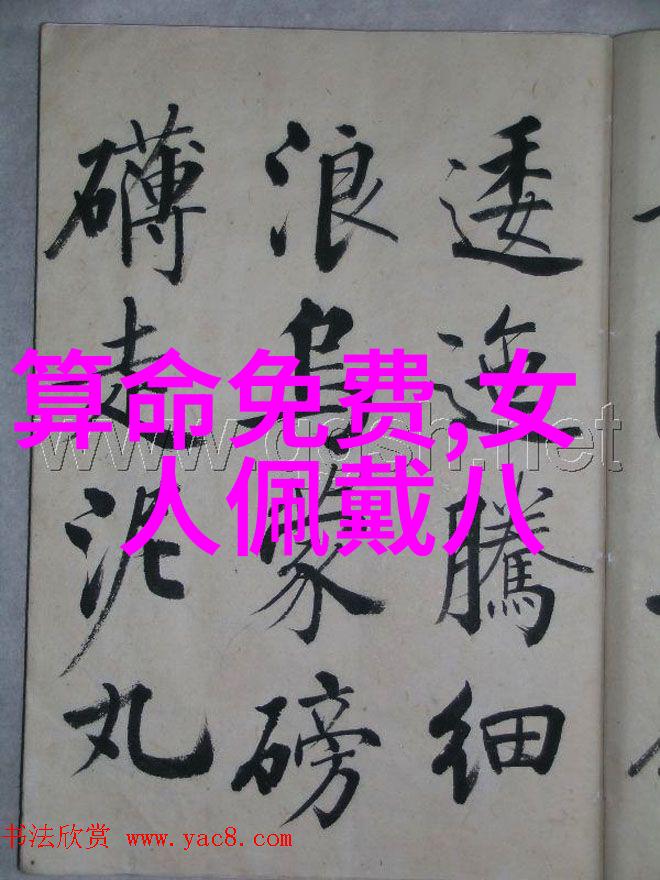 逶迤騰細
浪烏蒙磅
礴走泥丸
算命免费,女
人佩戴八
书法欣赏 www.yac8.com